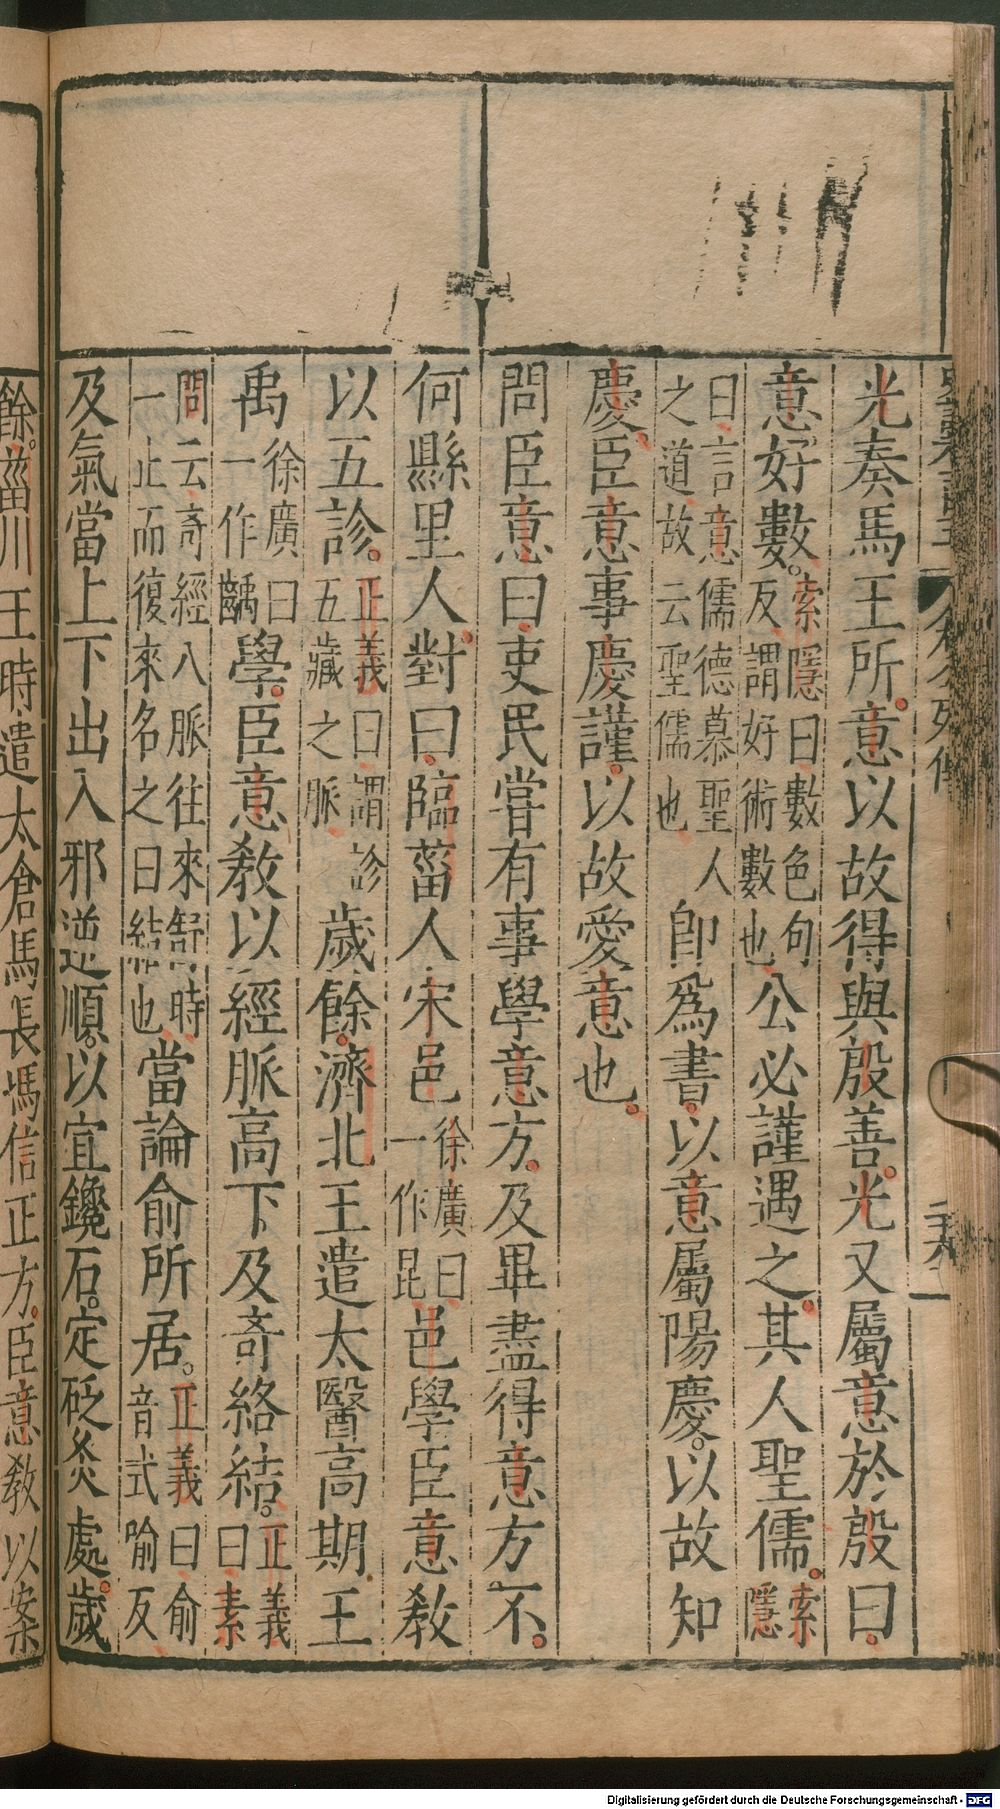 光奏馬王所。意以故得與殷善。光又屬意於殷曰。
意好數。索隱曰數色句反謂好術數也公必謹遇之。其人聖儒。索隱
曰言意儒德慕聖人之道故云聖儒也即爲書。以意屬陽慶。以故知
慶。臣意事慶謹。以故愛意也。
問臣意曰。吏民嘗有事學意方。及畢盡得意方不。
何縣里人。對曰。臨菑人宋邑徐廣曰一作昆邑學臣意教
以五診。正義曰謂診五藏之脈歲餘。濟北王遣太醫高期王
禹徐廣曰一作齲學。臣意教以經脈高下及奇絡結。正義曰素
問云奇經八脈往來舒時一止而復來名之曰結也當論俞所居。正義曰俞音式喻反
及氣當上下出入邪逆順。以宜鑱石。定砭灸處。歲
餘。菑川王時遣太倉馬長馮信正方。臣意教以案
Digitalisierung gefördert durch die Deutsche Forschungsgemeinschaft - DFG